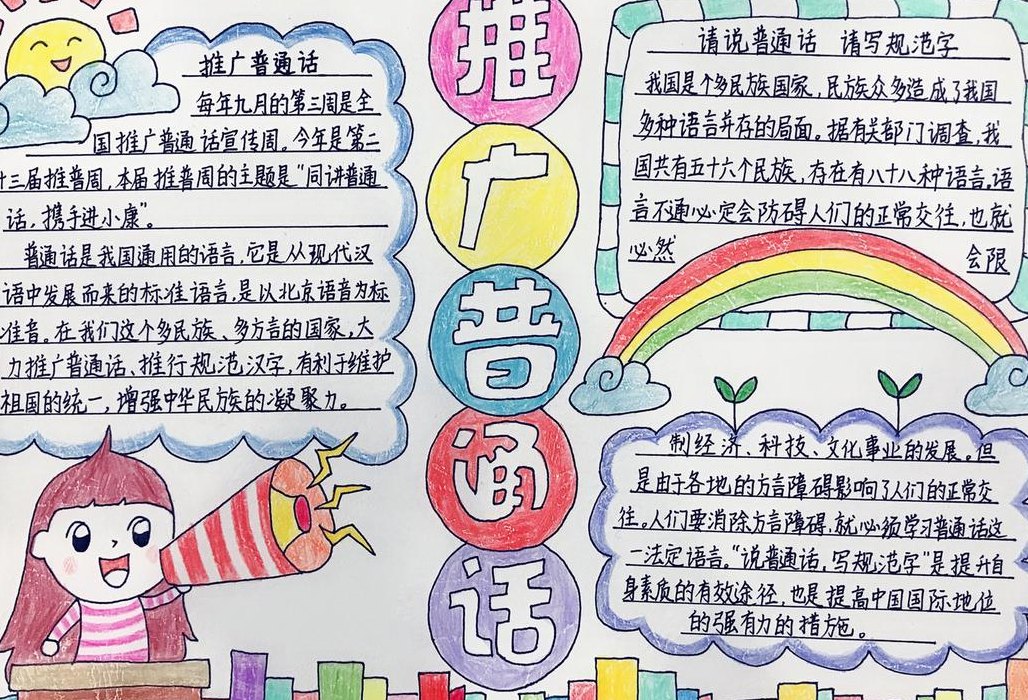 推广普通话
每年九月的第三周是全
国推广普通话宣传周。今年是第二
十三届推普周,本届推普周的主题是“同讲普通
话,携手进小康”。
普通话是我国通用的语言,它是从现代汉
语中发展而来的标准语言,是以北京语音为标
准音。在我们这个多民族、多方言的国家,大
力推广普通话、推行规范汉字,有利于维护
祖国的统一,增强中华民族的凝聚力。
推
广
普
通
话
请说普通话 请写规范字
我国是个多民族国家,民族众多造成了我国
多种语言并存的局面。据有关部门调查,我
国共有五十六个民族,存在有八十八种语言。语
言不通必定会防碍人们的正常交往,也就
必然 会限
制经济、科技、文化事业的发展。但
是由于各地的方言障碍影响了人们的正常交
往。人们要消除方言障碍,就必须学习普通话这
一法定语言。“说普通话,写规范字”是提升自
身素质的有效途径,也是提高中国国际地位
的强有力的措施。